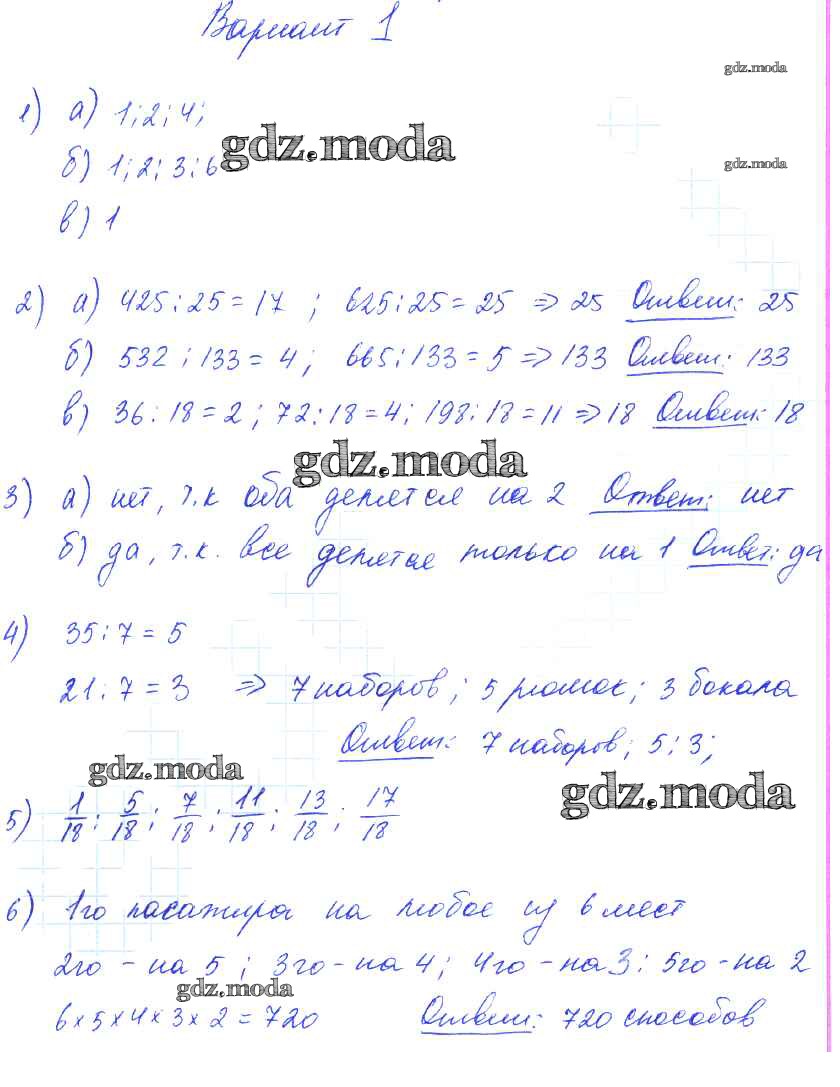 Вариант 1
gdz.moda
1) а) 1; 2; 4;
gdz.moda
б) 1; 2; 3; 6
gdz.moda
в) 1
2) а) 425 : 25 = 17 ; 625 : 25 = 25 => 25 Ответ: 25
б) 532 : 133 = 4 ; 665 : 133 = 5 => 133 Ответ: 133
в) 36 : 18 = 2 ; 72 : 18 = 4 ; 198 : 18 = 11 => 18 Ответ: 18
gdz.moda
3) а) нет, т.к оба делятся на 2 Ответ: нет
б) да, т.к. все делятся только на 1 Ответ: да
4) 35 : 7 = 5
21 : 7 = 3 => 7 наборов ; 5 рюмок ; 3 бокала
Ответ: 7 наборов ; 5 ; 3 ;
gdz.moda
gdz.moda
5) 1/18 ; 5/18 ; 7/18 ; 11/18 ; 13/18 ; 17/18
6) 1го пасажира на любое из 6 мест
2го - на 5 ; 3го - на 4 ; 4го - на 3 ; 5го - на 2
gdz.moda
6 × 5 × 4 × 3 × 2 = 720 Ответ: 720 способов